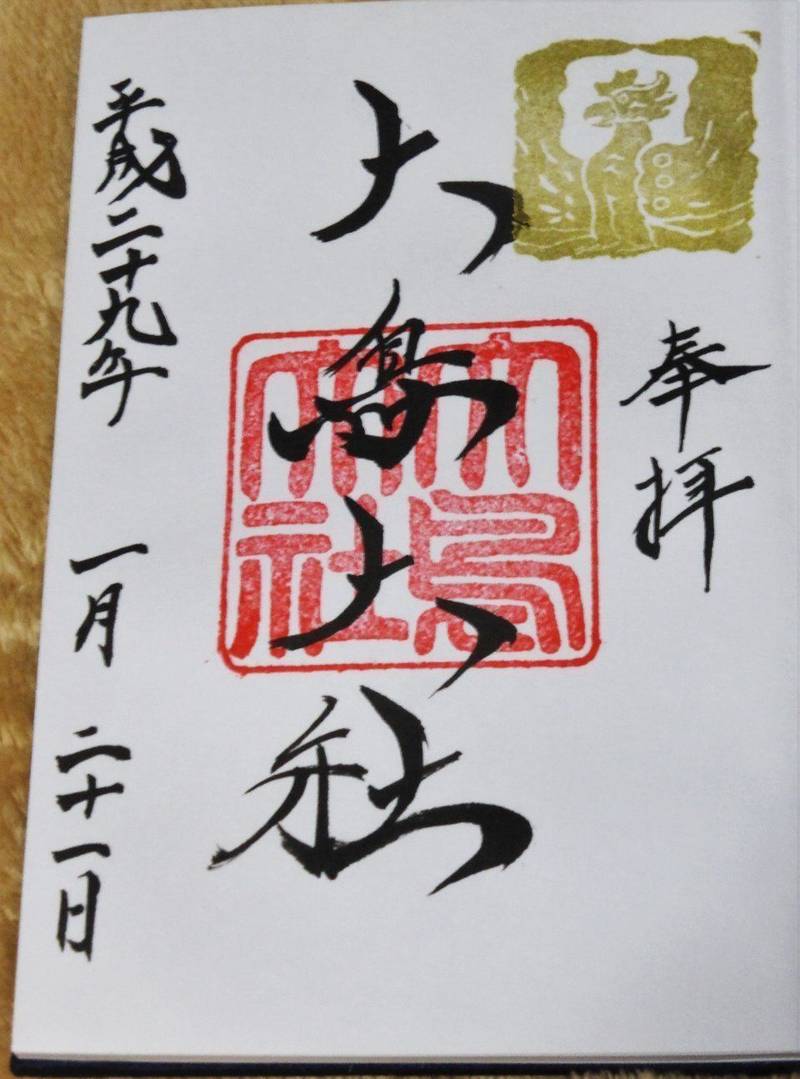 奉拝
大鳥大社
大鳥
大社
平成二十九年 一月 二十一日